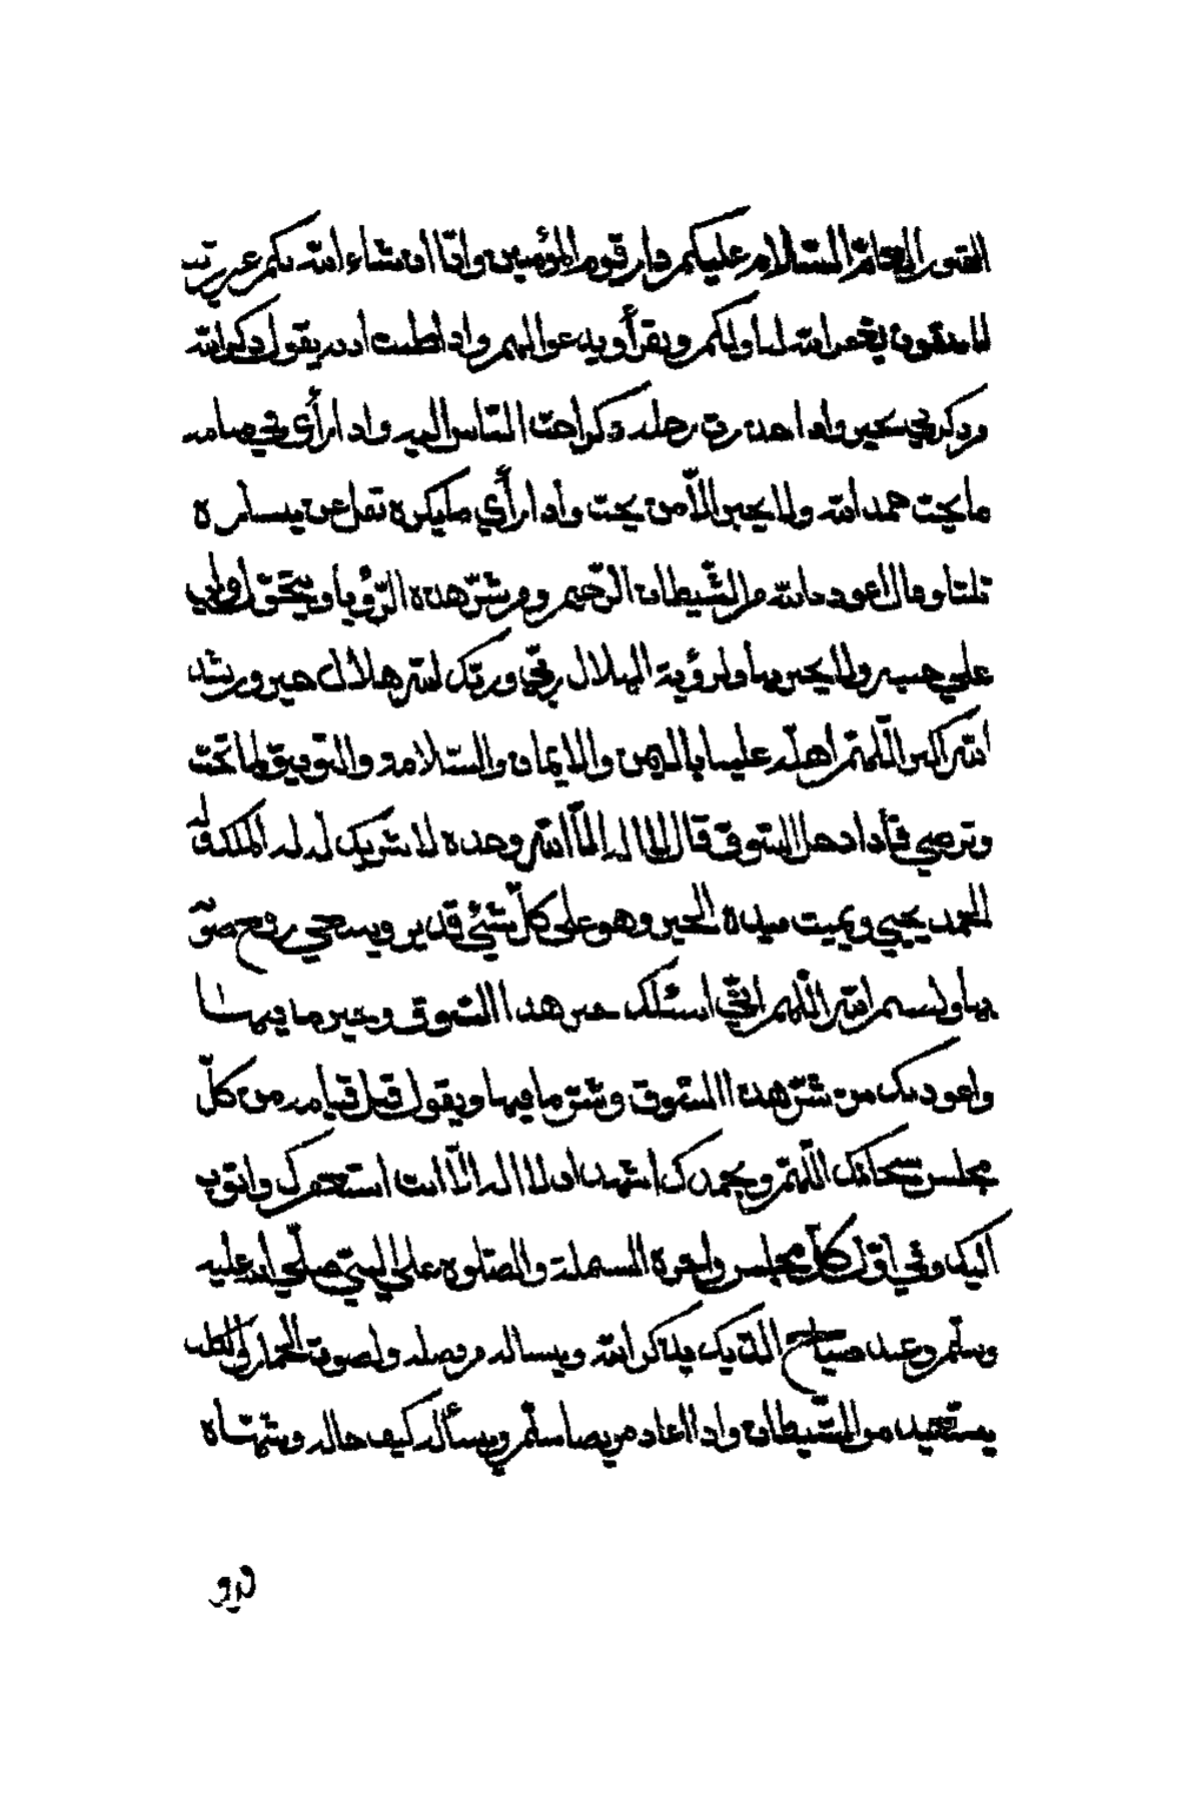 القبور إلى عامّ السّلام عليكم دار قوم المؤمنين وانّا ان شاء الله بكم عن قريب
لاحقون يغفر الله لنا ولكم ويقرأ ويدعوا لهم واذا طنت اذنه يقول ذكر الله
من ذكرني بخير واذا خدرت رجله ذكر احبّ النّاس اليه واذا رأى في منامه
ما يحبّ حمد الله ولا يخبر الاّ من يحبّ واذا رأى ما يكره تفل عن يساره
ثلثا وقال اعوذ بالله من الشّيطان الرّجيم ومن شرّ هذه الرّؤيا ويتحوّل
على جنبه ولا يخبر بها ولرؤية الهلال ربّي وربّك الله هلال خير ورشد
الله اكبر اللّهمّ اهلّه علينا باليمن والايمان والسّلامة والتّوفيق لما تحبّ
وترضى فأذا دخل السّوق قال لا اله الاّ الله وحده لا شريك له له الملك وله
الحمد يحيي ويميت بيده الخير وهو على كلّ شئ قدير ويستحي رفع صوته
بها ولبسم الله اللّهم انّي اسئلك خير هذا السّوق وخير ما فيها
واعوذ بك من شرّ هذه السّوق وشرّ ما فيها ويقول قبل قيامه من كلّ
مجلس سبحانك اللّهمّ وبحمدك اشهد ان لا اله الاّ انت استغفرك واتوب
اليك وفي اوّل كلّ مجلس واخره البسملة والصّلوة على النبيّ صلّى الله عليه
وسلّم وعند صياح الديك يذكر الله ويساله من فضله ولصوت الحمار والكلب
يستعيذ من الشّيطان واذا عاد مريضا سلّم ويسأله كيف حاله ويشهّاه